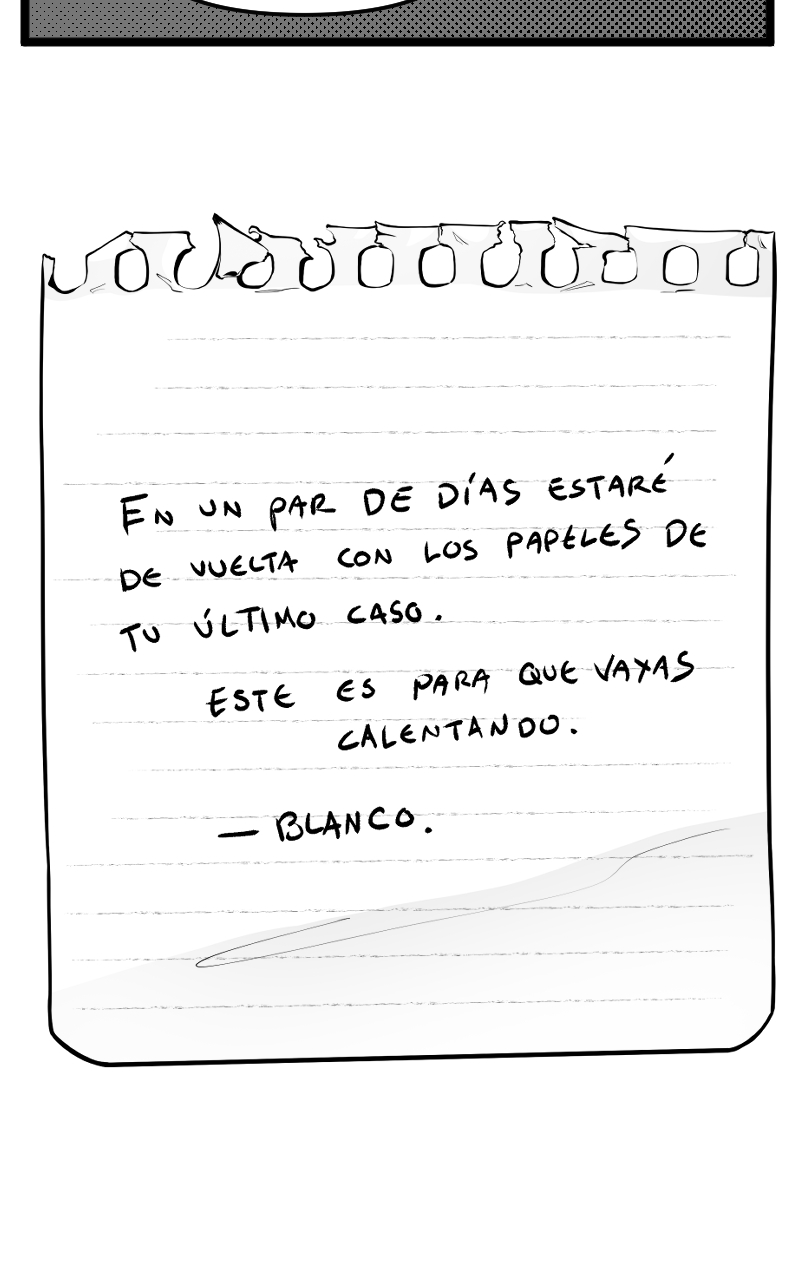 En UN PAR DE DÍAS ESTARÉ
DE VUELTA CON LOS PAPELES DE
TU ÚLTIMO CASO.
ESTE ES PARA QUE VAYAS
CALENTANDO.
— BLANCO.